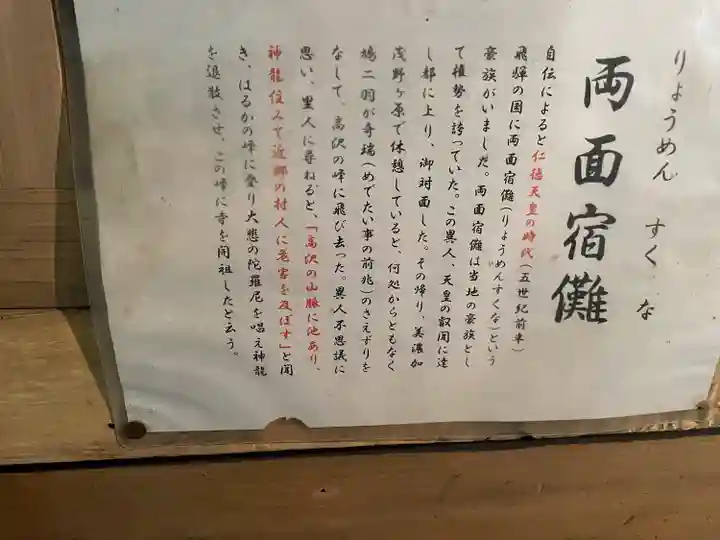 りょうめん すくな
両面宿儺
自伝によると仁徳天皇の時代(五世紀前半)
飛騨の国に両面宿儺(りょうめんすくな)という
豪族がいましだ。両面宿儺は当地の豪族とし
て権勢を誇っていた。この異人、天皇の叡聞に達
し都に上り、御対面した。その帰り、美濃加
茂野ヶ原で休憩していると、何処からともなく
鳩二羽が奇瑞(めでたい事の前兆)のさえずりを
なして、高沢の峰に飛び去った。異人不思議に
思い、里人に尋ねると、「高沢の山脈に池あり、
神龍住みて近郷の村人に危害を及ぼす」と聞
き、はるかの峰に登り大悲の陀羅尼を唱え神龍
を退散させ、この峰に寺を開祖したと云う。